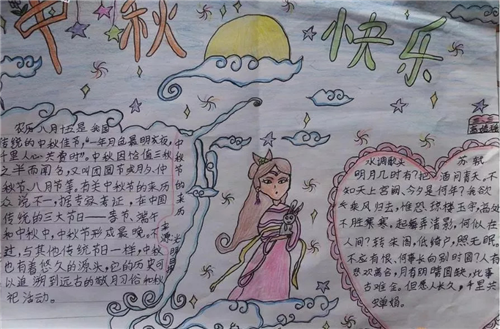 中秋快乐
农历八月十五是我国
传统的中秋佳节,"一年月色最明夜,
千里人心共赏时"。中秋因恰值三秋
之半而闻名,又叫团圆节或月夕、仲
秋节、八月节等,有关中秋节的来历
众说不一,据专家考证,在中国
传统的三大节日——春节、端午
和中秋中,中秋节形成最晚,不
过,与其他传统节日一样,中秋
也有着悠久的源头,它的历史可
以追溯到远古的赋月习俗和秋
祀活动。
水调歌头 苏轼
明月几时有?把酒问青天。不
知天上宫阙,今夕是何年?我欲
乘风归去,惟恐琼楼玉宇,高处
不胜寒,起舞弄清影,何似在
人间?转朱阁,低绮户,照无眠
不应有恨,何事长向别时圆?人有
悲欢离合,月有阴晴圆缺,此事
古难全。但愿人长久,千里共
婵娟。